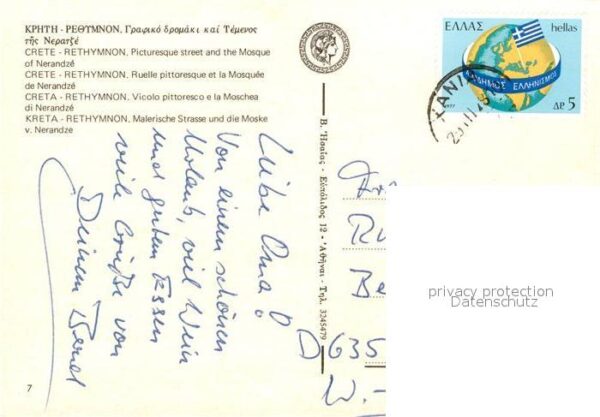 ΚΡΗΤΗ - ΡΕΘΥΜΝΟΝ, Γραφικό δρομάκι καί Τέμενος
τῆς Νερατζέ
CRETE - RETHYMNON, Picturesque street and the Mosque
of Nerandzé
CRETE - RETHYMNON, Ruelle pittoresque et la Mosquée
de Nerandzé
CRETA - RETHYMNON, Vicolo pittoresco e la Moschea
di Nerandzé
KRETA - RETHYMNON, Malerische Strasse und die Moske
v. Nerandze
Liebe Oma!
Von einem schönen
Urlaub, viel Wein
und gutem Essen
viele Grüße von
Deinem Bernd
7
Β. Ἡσαΐας - Εὐπόλιδος 12 - Ἀθῆναι - Τηλ. 3245479
ΕΛΛΑΣ hellas
ΑΠΟΔΗΜΟΣ ΕΛΛΗΝΙΣΜΟΣ
1977
ΔΡ 5
ΧΑΝΙ
Be
D 635
W.-
privacy protection
Datenschutz